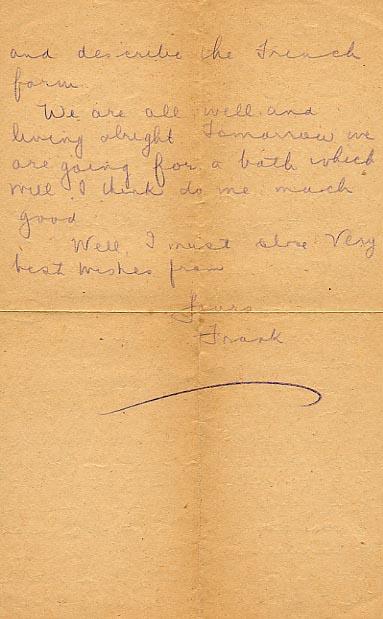 and describe the French
farm.
We are all well and
living alright Tomorrow we
are going for a bath which
will I think do me much
good
Well, I must close Very
best wishes from
Yours
Frank